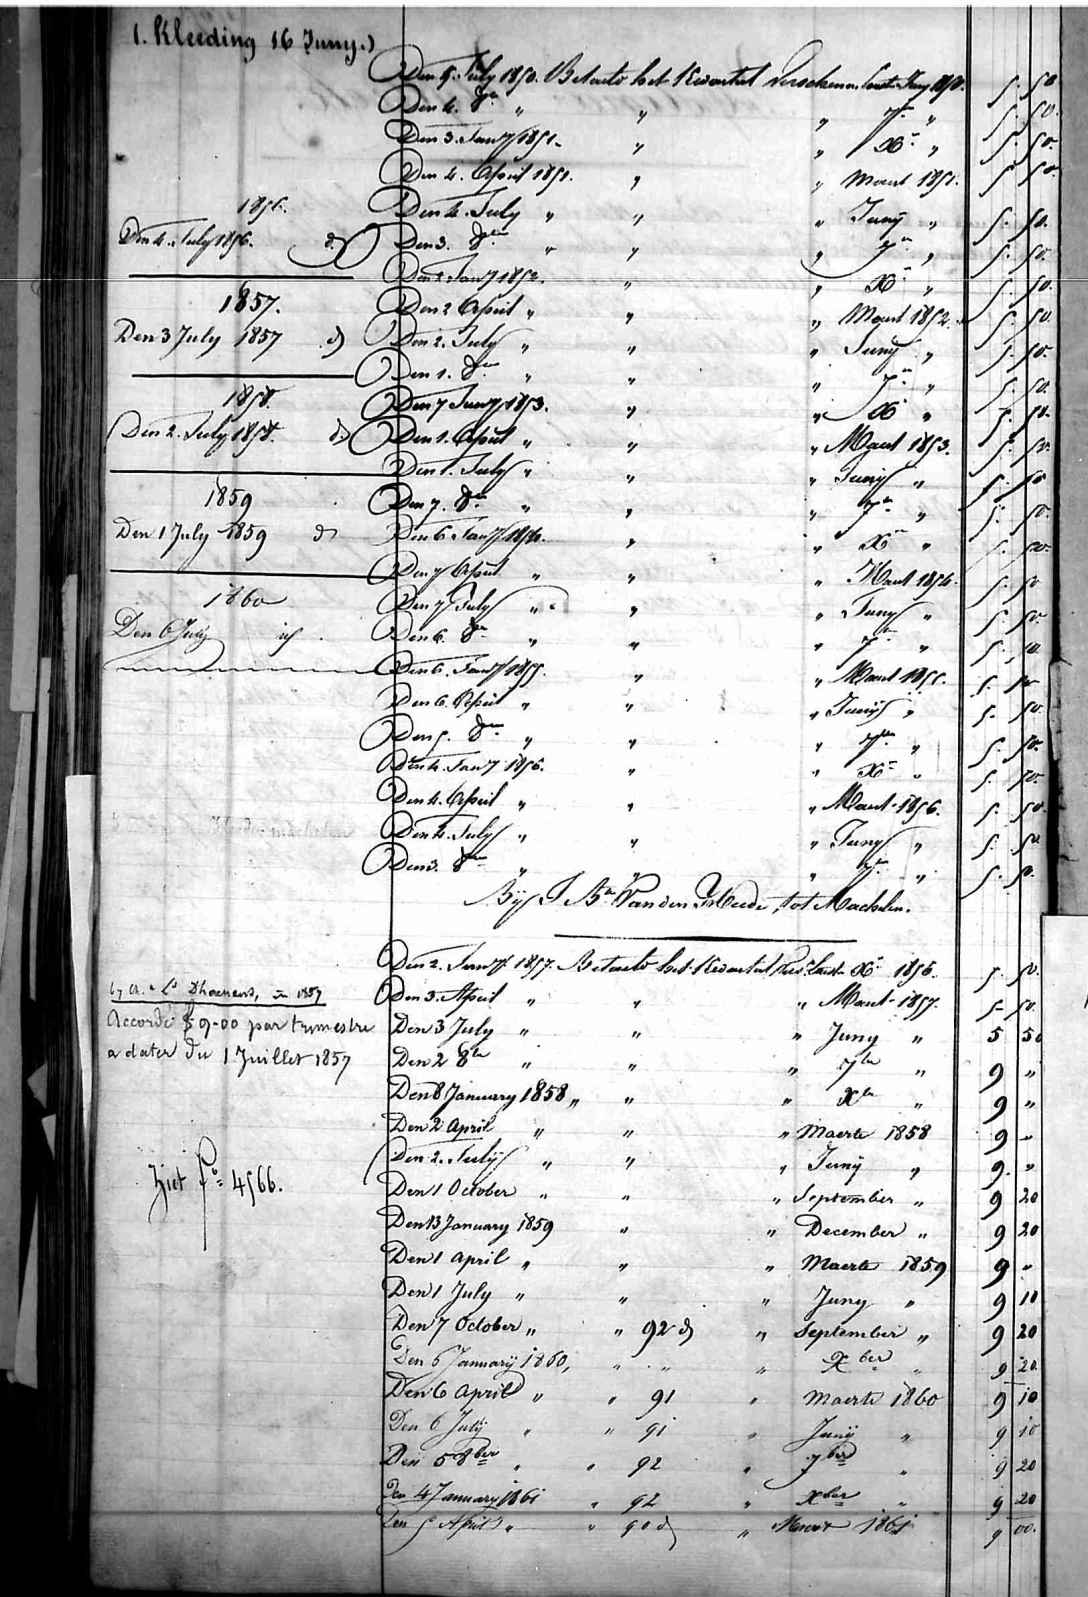 1. Kleeding 16 Juny.)
Den 5 July 1850. Betaelt het Kwartael Verschenen laest Juny 1850. 5. 50
Den 4. 8re " " " 7re " 5. 50.
Den 3. Janry 1851. " " Xre " 5. 50.
Den 4. April 1851. " " Maert 1851. 5. 50.
Den 4. July " " " Juny " 5. 50.
Den 3. 8re " " " 7re " 5. 50.
Den 2 Janry 1852. " " Xre " 5. 50.
Den 2 April " " " Maert 1852. 5. 50.
Den 2. July " " " Juny " 5. 50.
Den 1. 8re " " " 7re " 5. 50.
Den 7 Janry 1853. " " Xre " 5. 50.
Den 1. April " " " Maert 1853. 5. 50.
Den 1. July " " " Juny " 5. 50
Den 7. 8re " " " 7re " 5. 50.
Den 6 Janry 1854. " " Xre " 5. 50.
Den 7 April " " " Maert 1854. 5. 50
Den 7 July " " " Juny " 5. 50.
Den 6. 8re " " " 7re " 5. 50.
Den 6. Janry 1855. " " Maert 1855. 5. 50
Den 6. April " " " Juny " 5. 50.
Den 5. 8re " " " 7re " 5. 50.
Den 4. Janry 1856. " " Xre " 5. 50.
Den 4. April " " " Maert 1856. 5. 50.
Den 4. July " " " Juny " 5. 50.
Den 3. 8re " " " 7re " 5. 50.
By J. Bte Van den tot Machelen.
Den 2. Janry 1857. Betaelt het Kwartael Vers. laest Xre 1856. 5. 50.
Den 3. April " " " Maert 1857. 5 50.
Den 3 July " " " Juny " 5 50
Den 2 8re " " " 7bre " 9 "
Den 8 January 1858 " " " Xbre " 9 "
Den 2 April " " " Maerte 1858 9 "
Den 2. July " " " Juny " 9. "
Den 1 October " " " September " 9 20
Den 13 January 1859 " " December " 9 20
Den 1 April " " " Maerte 1859 9 "
Den 1 July " " " Juny " 9 10
Den 7 October " " 92 d) " September " 9 20
Den 6 January 1860, " " " Xber " 9 20.
Den 6 April " " 91 " Maerte 1860 9 10
Den 6 July " " 91 " Juny " 9 10
Den 5 8ber " " 92 " 7ber " 9 20
Den 4 January 1861 " 92 " Xber " 9 20
Den 5 April " " 90 d) " Maert 1861 9 00.
1856.
Den 4. July 1856. d)
1857.
Den 3 July 1857 d)
1858.
Den 2. July 1858. d)
1859
Den 1 July 1859 d)
1860
Den 6 July id
by A. & Ls Dhaenens, in 1857
Accordé f 9-00 par trimestre
a dater du 1 Juillet 1857
Ziet fo 4566.